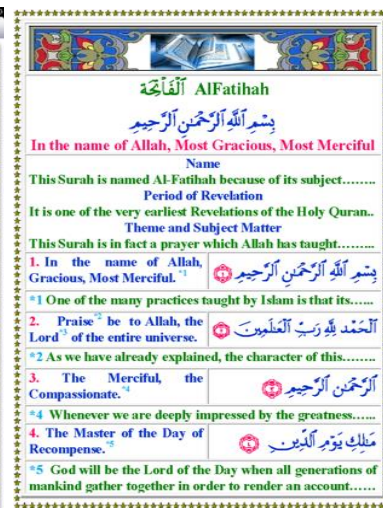 ٱلْفَاتِحَة AlFatihah
بِسْمِ ٱللَّهِ ٱلرَّحْمَٰنِ ٱلرَّحِيمِ
In the name of Allah, Most Gracious, Most Merciful
Name
This Surah is named Al-Fatihah because of its subject........
Period of Revelation
It is one of the very earliest Revelations of the Holy Quran..
Theme and Subject Matter
This Surah is in fact a prayer which Allah has taught.........
1. In the name of Allah,
Gracious, Most Merciful. *1
بِسْمِ ٱللَّهِ ٱلرَّحْمَٰنِ ٱلرَّحِيمِ ١
*1 One of the many practices taught by Islam is that its......
2. Praise*2 be to Allah, the
Lord*3 of the entire universe.
ٱلْحَمْدُ لِلَّهِ رَبِّ ٱلْعَٰلَمِينَ ٢
*2 As we have already explained, the character of this........
3. The Merciful, the
Compassionate.*4
ٱلرَّحْمَٰنِ ٱلرَّحِيمِ ٣
*4 Whenever we are deeply impressed by the greatness......
4. The Master of the Day of
Recompense.*5
مَٰلِكِ يَوْمِ ٱلدِّينِ ٤
*5 God will be the Lord of the Day when all generations of
mankind gather together in order to render an account......